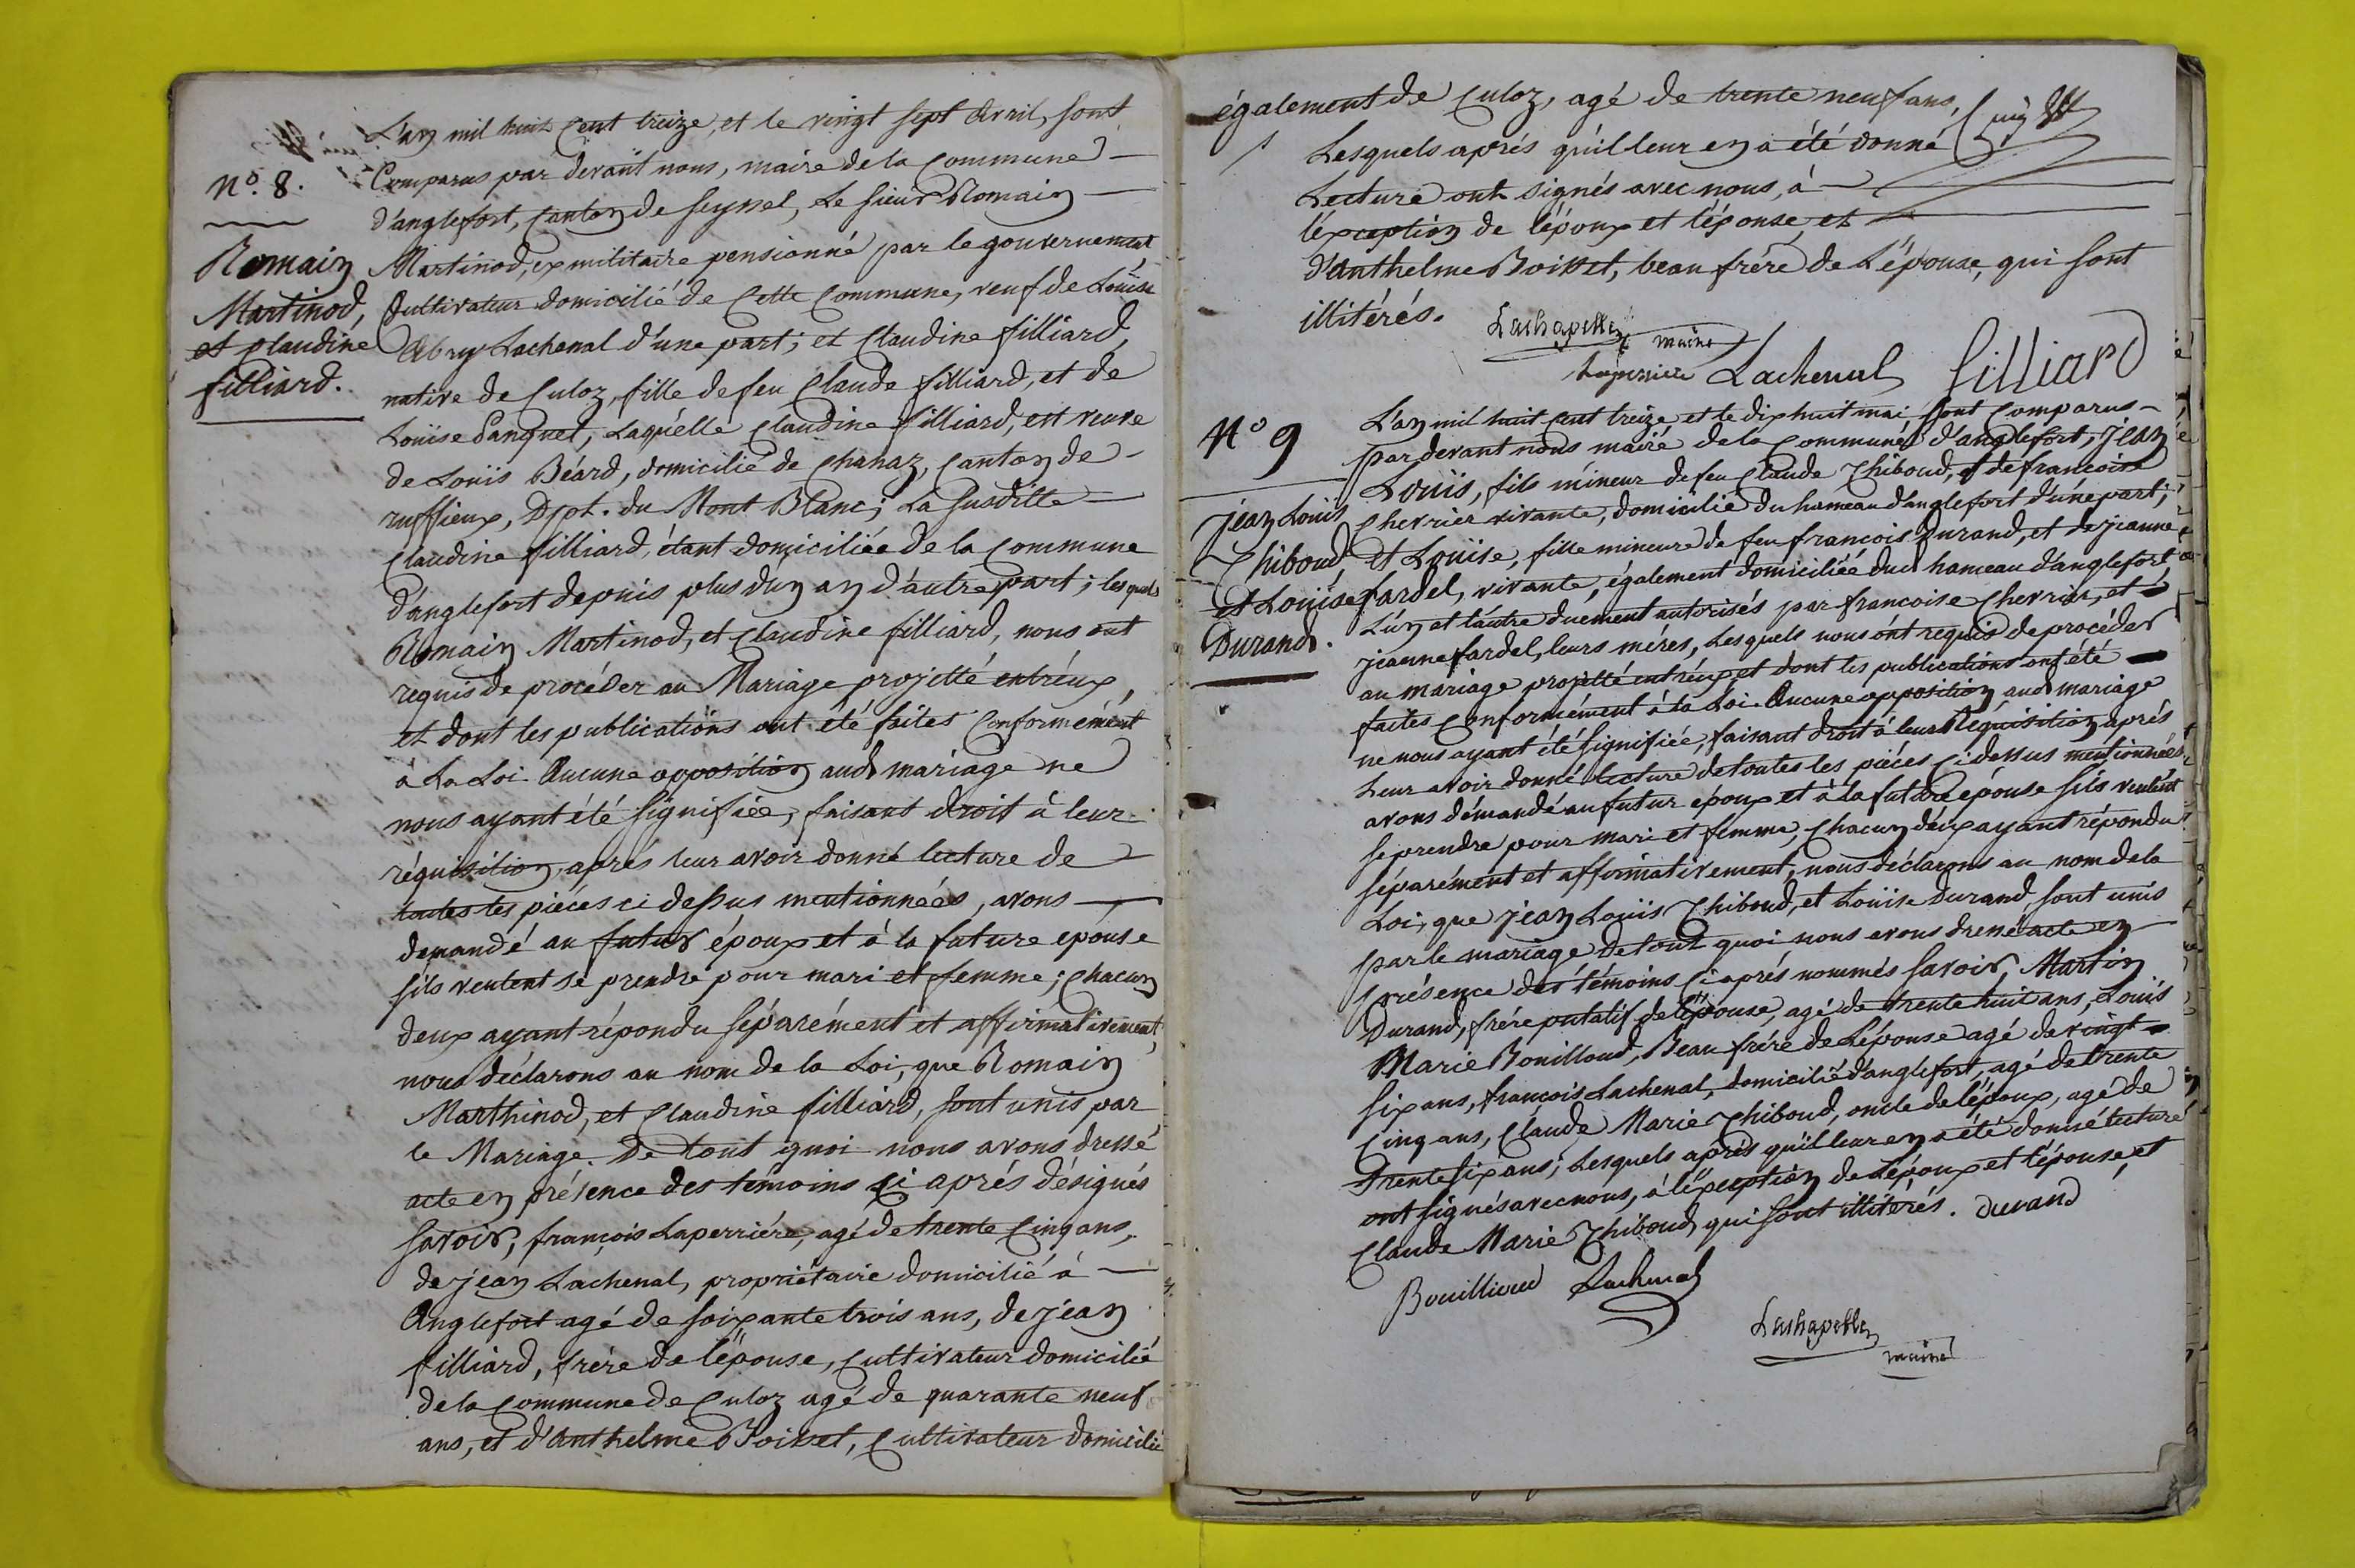 N.º 8.
Romain
Martinod,
et Claudine
filliard.
L'an mil huit Cent treize, et le vingt sept Avril, sont
Comparus par devant nous, maire de la Commune
d'anglefort, Canton de Seyssel, Le sieur Romain
Martinod, ex militaire pensionné par le gouvernement
Cultivateur domicilié de Cette Commune, veuf de Louïse
Abry Lachenal d'une part; et Claudine filliard,
native de Culoz, fille de feu Claude filliard, et de
Louïse Panquet, Laquélle Claudine filliard, est veuve
de Louïs Béard, domicilié de Chanaz, Canton de
ruffieux, Dpt. du Mont Blanc; La susditte
Claudine filliard, étant domiciliée de la Commune
d'anglefort depuis plus d'un an d'autre part; lesquels
Romain Martinod, et Claudine filliard, nous ont
requis de procéder au Mariage projetté entréux,
et dont les publicatïons ont été faites Conformément
à La Loi. Aucune opposition aud mariage ne
nous ayant été signifiée, faisant droit à leur
réquisition, aprés leur avoir donné lecture de
toutes les piéces ci dessus mentionnées, avons
demandé au futur époux et à la future epouse
sils veulent se prendre pour mari et femme; Chacun
deux ayant répondu séparément et affirmativement,
nous déclarons au nom de la Loi, que Romain
Marthinod, et Claudine filliard, sont unis par
le Mariage. De tout quoi nous avons dressé
acte en présence des témoins ci aprés désignés
savoir, françois Laperriére, agé de trente Cinq ans,
de jean Lachenal, propriétaire domicilié à
Anglefort agé de soixante trois ans, de jean
filliard, frére de lépouse, Cultivateur domicilié
de la Commune de Culoz agé de quarante neuf
ans, et d'Anthelme Boisset, Cultivateur domicilié
également de Culoz, agé de trente neuf ans,
Lesquels aprés qu'il leur en a été donné
Lecture ont signés avec nous, à
léxception de lépoux et lépouse, et
d'Anthelme Boisset, beau frére de Lépouse, qui sont
illitérés.
Lachapelle
maire
Laperriere Lachenal filliard
N.º 9
jean Louïs
Thiboud
et Louïse
Durand.
L'an mil huit Cent treize et le dix huit mai, sont Comparus
par devant nous maire de la Commune d'anglefort, jean
Louïs, fils mineur de feu Claude Thiboud, et de francoise
Chevrier vivante, domicilié du hameau d'anglefort d'une part;
et Louïse, fille mineure de feu francois Durand, et de jeanne
fardel, vivante, également domiciliée dud hameau d'anglefort,
L'un et l'autre duement autorisés par francoise Chevrier, et
jeanne fardel, leurs méres, Lesquels nous ont requis de procéder
au mariage projetté entréux et dont les publications ont été
faites Conformément à la Loi. Aucune opposition aud mariage
ne nous ayant été signifiée, faisant droit à leur Réquisition, aprés
Leur avoir donné lecture de toutes les piéces Ci dessus mentionnées
avons démandé au futur époux et à la future épouse sils veulent
se prendre pour mari et femme, Chacun déux ayant répondu
séparément et affirmativement, nous déclarons au nom de la
Loi, que jean Louïs Thiboud, et Louïse Durand, sont unis
par le mariage de tout quoi nous avons dressé acte en
présence des témoins Ci aprés nommés savoir, Martin
Durand, frére putatif de lépouse, agé de trente huit ans, Louïs
Marie Bouilloud, Beau frére de Lépouse agé de vingt
six ans, françois Lachenal, domicilié d'anglefort, agé de trente
Cinq ans, Claude Marie Thiboud, oncle de lépoux, agé de
trente six ans; Lesquels aprés qu'il leur en a été donné lecture
ont signés avec nous, à léxception de Lépoux et lépouse, et
Claude Marie Thiboud, qui sont illitérés. durand
Bouillioud Lachenal
Lachapelle
maire